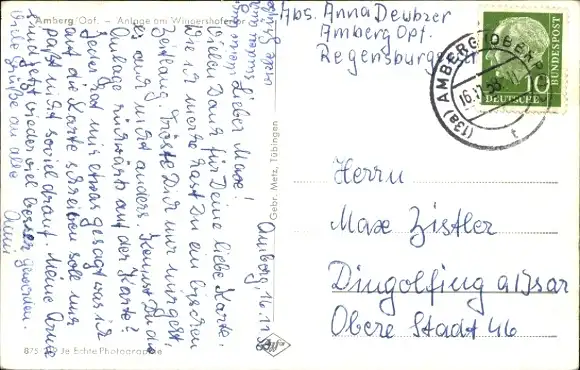 Amberg/Opf. - Anlage am Wingershoferto
Abs. Anna Deubzer
Amberg Opf.
Regensburgerst
(13a) AMBERG (OBERPF
16.11.58
t
10
DEUTSCHE
BUNDESPOST
Herrn
Max Zistler
Dingolfing a/Isar
Obere Stadt 46
Gebr. Metz, Tübingen
Amberg, 16.11.58
Mein lieber Maxe!
Vielen Dank für Deine liebe Karte.
Wie ich merke hast Du ein bischen
Zeitlang. Tröste Dich nur mir gehts
es auch nicht anders. Kennst Du die
Anlage rückwärts auf der Karte?
Jener hat mir etwas gesagt was ich
auf die Karte schreiben soll nur
paßt nicht soviel drauf. Meine Arme
sind jetzt wieder viel besser geworden.
Viele Grüße an alle
Anni
875 Je Echte Photographie